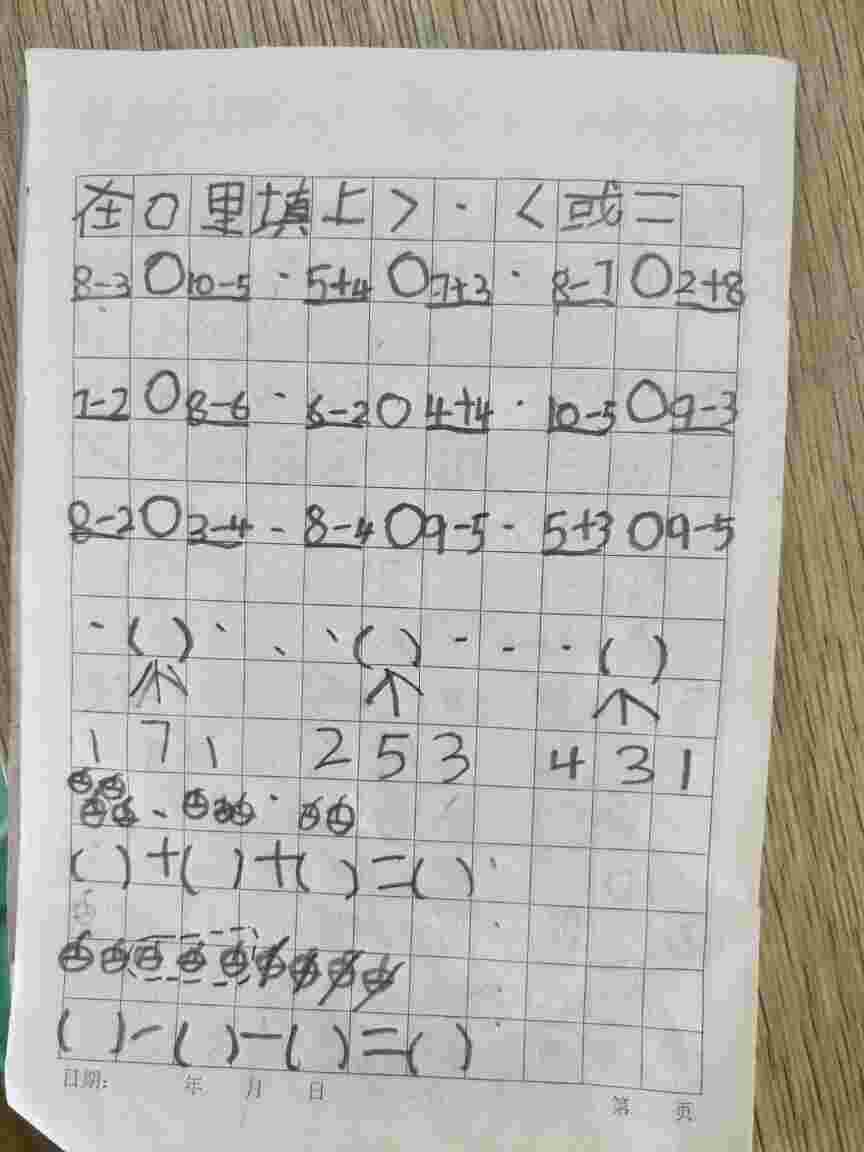 在○里填上>、<或=
8-3○10-5 5+4○7+3 8-7○2+8
7-2○8-6 6-2○4+4 10-5○9-3
8-2○3-4 8-4○9-5 5+3○9-5
( ) ( ) ( )
1 7 1 2 5 3 4 3 1
( )+( )+( )=( )
( )-( )-( )=( )
日期: 年 月 日 第 页